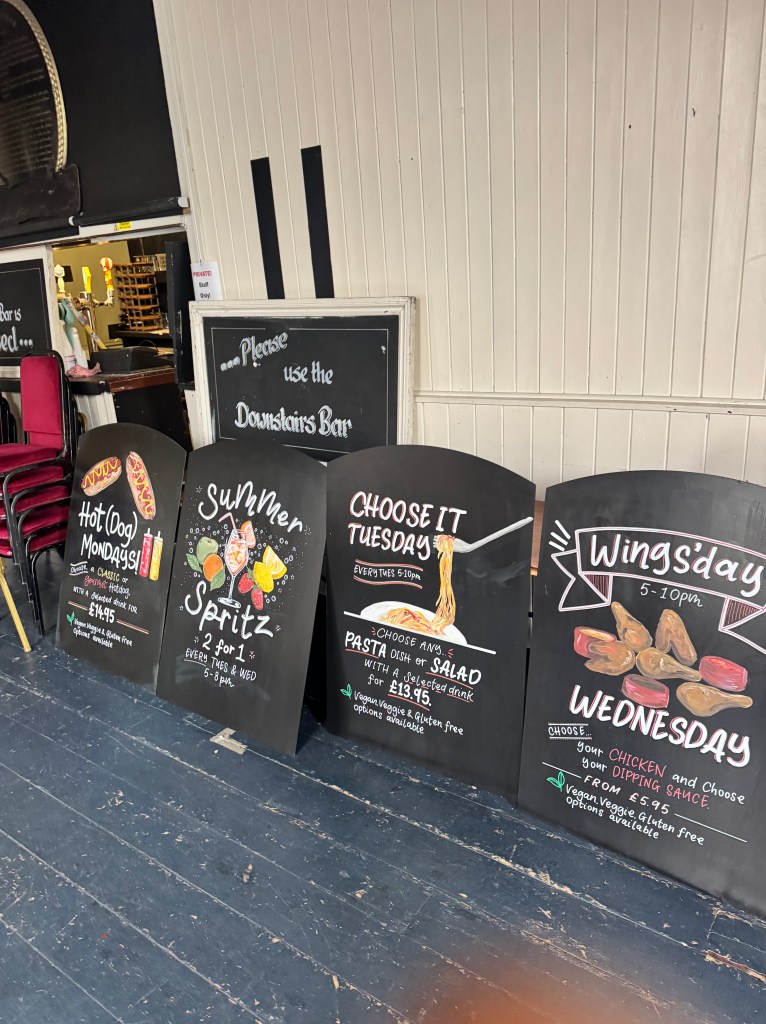 Bar is
...sed...
PRIVATE!
Staff
Only!
...Please
use the
Downstairs Bar
Hot (Dog)
MONDAYS!
CHOOSE
a CLASSIC or
gourmet Hotdog
WITH A Selected drink FOR
£14.95
Vegan, Veggie, & Gluten free
options available
SuMMer
Spritz
2 for 1
EVERY TUES & WED
5-8pm
CHOOSE IT
TUESDAY
EVERY TUES 5-10pm
CHOOSE ANY...
PASTA DISH or SALAD
WITH A selected drink
for £13.95.
Vegan, Veggie & Gluten free
options available
Wings'day
5-10pm
WEDNESDAY
CHOOSE...
your CHICKEN and Choose
your DIPPING SAUCE
FROM £5.95
Vegan, Veggie, Gluten free
options available